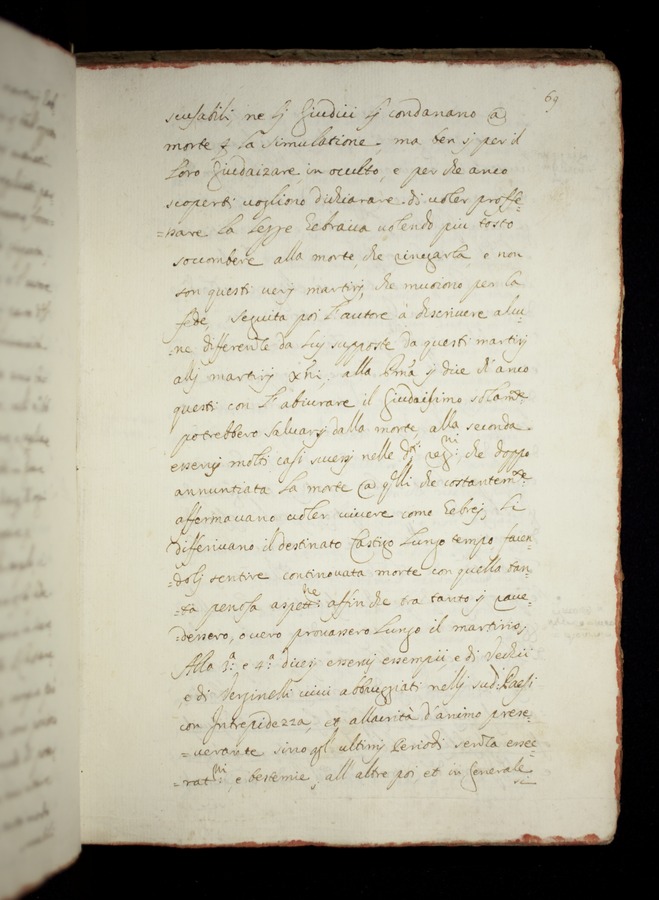 69
scusabili, ne lj Giudici lj condanano a
morte p la simulatione, ma ben sj per il
loro Giudaizare in oculto, e per che anco
scoperti vogliono dichiarare di voler profes=
=sare la legge hebraica volendo più tosto
soccombere alla morte, che negarla, o non
son questi verij martirj, che muoiono per la
fede, Seguita poi l'autore à descrivere alcu=
=ne differenze da luj supposte da questi martirj
alli martirj Xñi: alla p.ma sj dice ch'anco
questi con l'abiurare il Giudaismo solam.te
potrebbero salvarsj dalla morte, alla seconda
esservj molti casi successj nelle d.ti reg.ni che doppo
annuntiata la morte a q̃lli che costantem.te
affermavano voler vivere come hebrej, li
differivano il destinato castigo lungo tempo facen=
=dolj sentire continovata morte con quella tan=
=ta penosa aspett.ne affin che tra tanto sj rave=
=dessero, o vero provassero lungo il martirio,
Alla 3.a e 4.a dicesi esservj essempii e di Vechii
e di Verginelle vivi abbruggiati nellj sud.i Paesi
con Intrepidezza, et allacrità d'animo perse=
=verante sino agl'ultimj Periodi senza essec=
=rat.ni e bestemie, all'altre poi et in generale
si